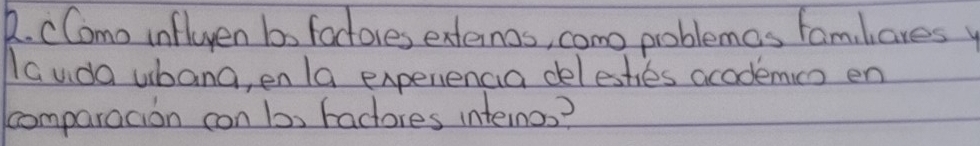 2. ¿Cómo influyen los factores externos, como problemas familiares y
la vida urbana, en la experiencia del estrés académico en
comparación con los factores internos?